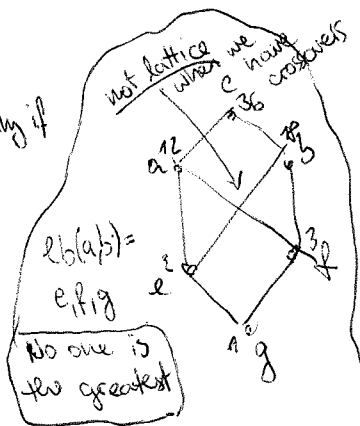 not lattice
when we
have
crossovers
only if
c 36
a 12
18 b
lb(a,b) =
e, f, g
e 2
3 f
1 g
No one is
the greatest